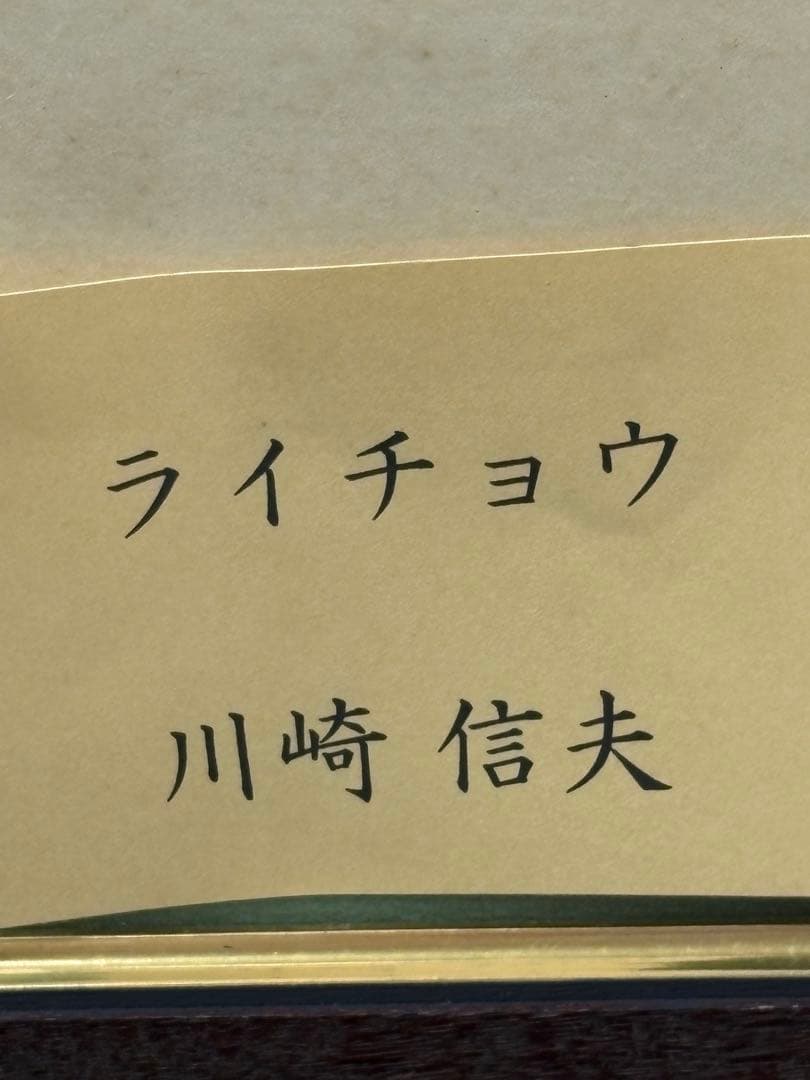 ライチョウ
川崎 信夫